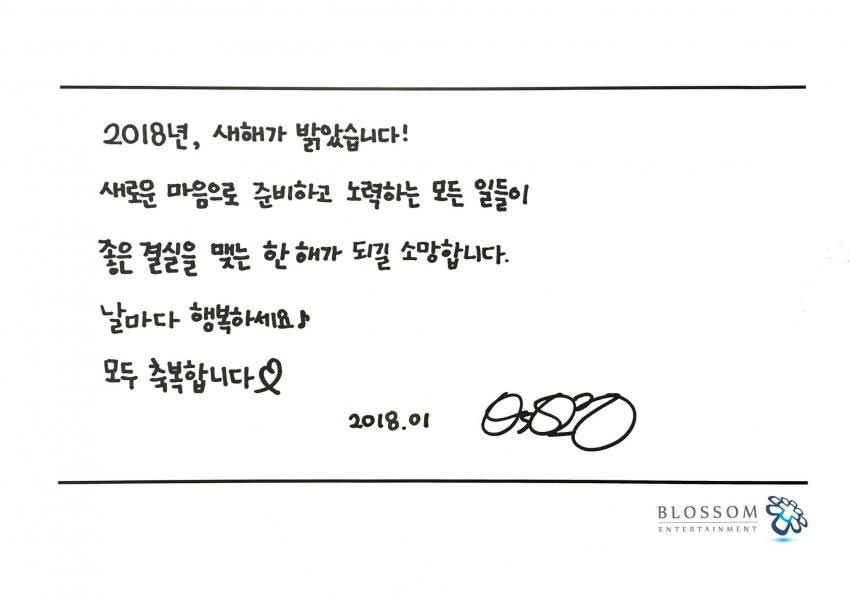 2018년, 새해가 밝았습니다!
새로운 마음으로 준비하고 노력하는 모든 일들이
좋은 결실을 맺는 한 해가 되길 소망합니다.
날마다 행복하세요♪
모두 축복합니다♡
2018.01
BLOSSOM
ENTERTAINMENT